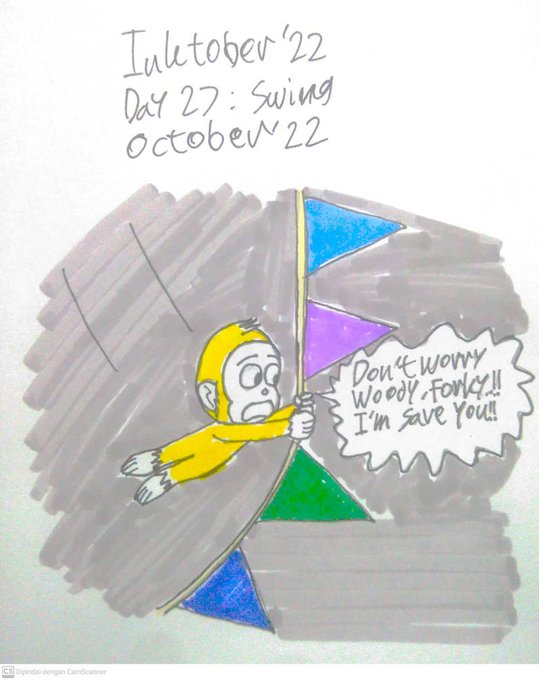 Inktober '22
Day 27: Swing
October '22
Don't worry
Woody, Forky!!
I'm save you!!
CS Dipindai dengan CamScanner